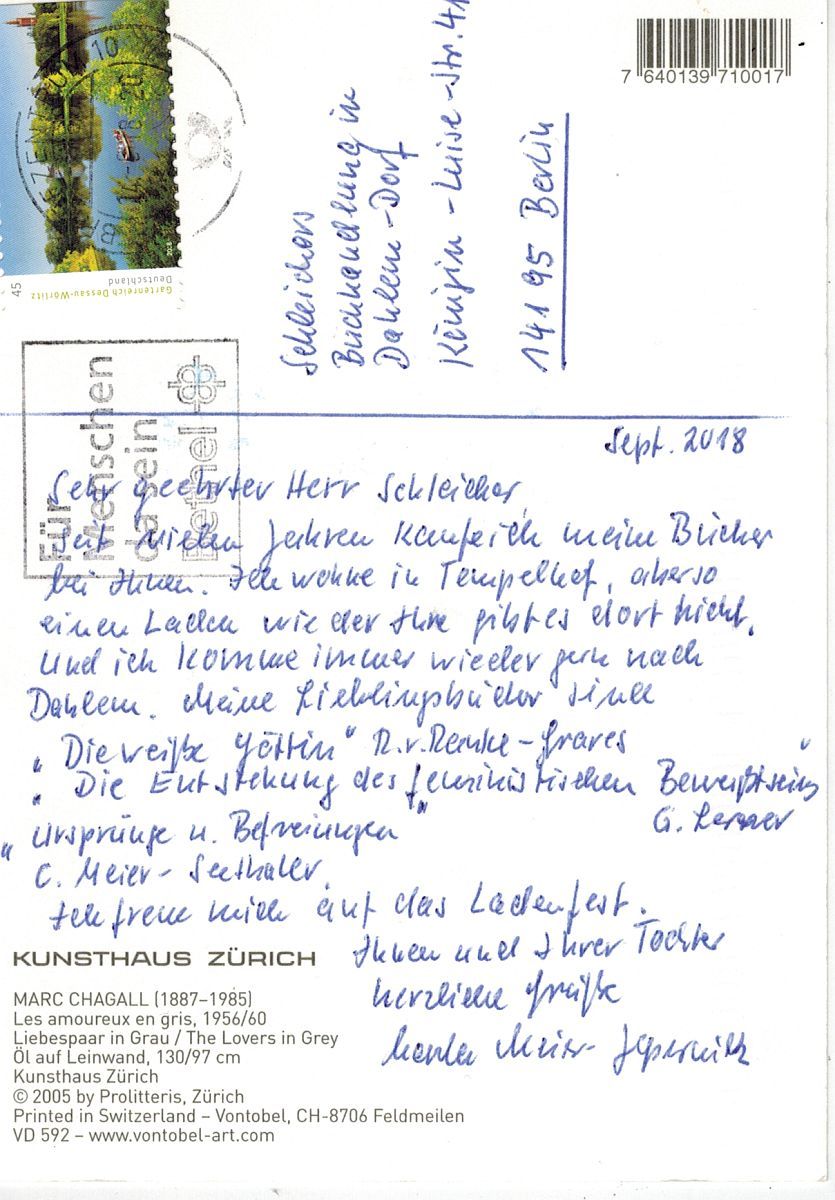 7 640139 710017
45
Gartenreich Dessau-Wörlitz
Deutschland
Schleichers
Buchhandlung in
Dahlem-Dorf
Königin-Luise-Str. 41
14195 Berlin
Für
Menschen
da sein
Bethel
Sept. 2018
Sehr geehrter Herr Schleicher,
seit vielen Jahren kaufe ich meine Bücher
bei Ihnen. Ich wohne in Tempelhof, aber so
einen Laden wie der Ihre gibt es dort nicht.
Und ich komme immer wieder gern nach
Dahlem. Meine Lieblingsbücher sind
„Die weiße Göttin" R. v. Ranke-Graves
„Die Entstehung des feministischen Bewußtseins"
G. Lerner
„Ursprünge u. Befreiungen"
C. Meier-Seethaler
Ich freue mich auf das Ladenfest.
Ihnen und Ihrer Tochter
herzliche Grüße
Meier-
KUNSTHAUS ZÜRICH
MARC CHAGALL (1887–1985)
Les amoureux en gris, 1956/60
Liebespaar in Grau / The Lovers in Grey
Öl auf Leinwand, 130/97 cm
Kunsthaus Zürich
© 2005 by Prolitteris, Zürich
Printed in Switzerland – Vontobel, CH-8706 Feldmeilen
VD 592 – www.vontobel-art.com